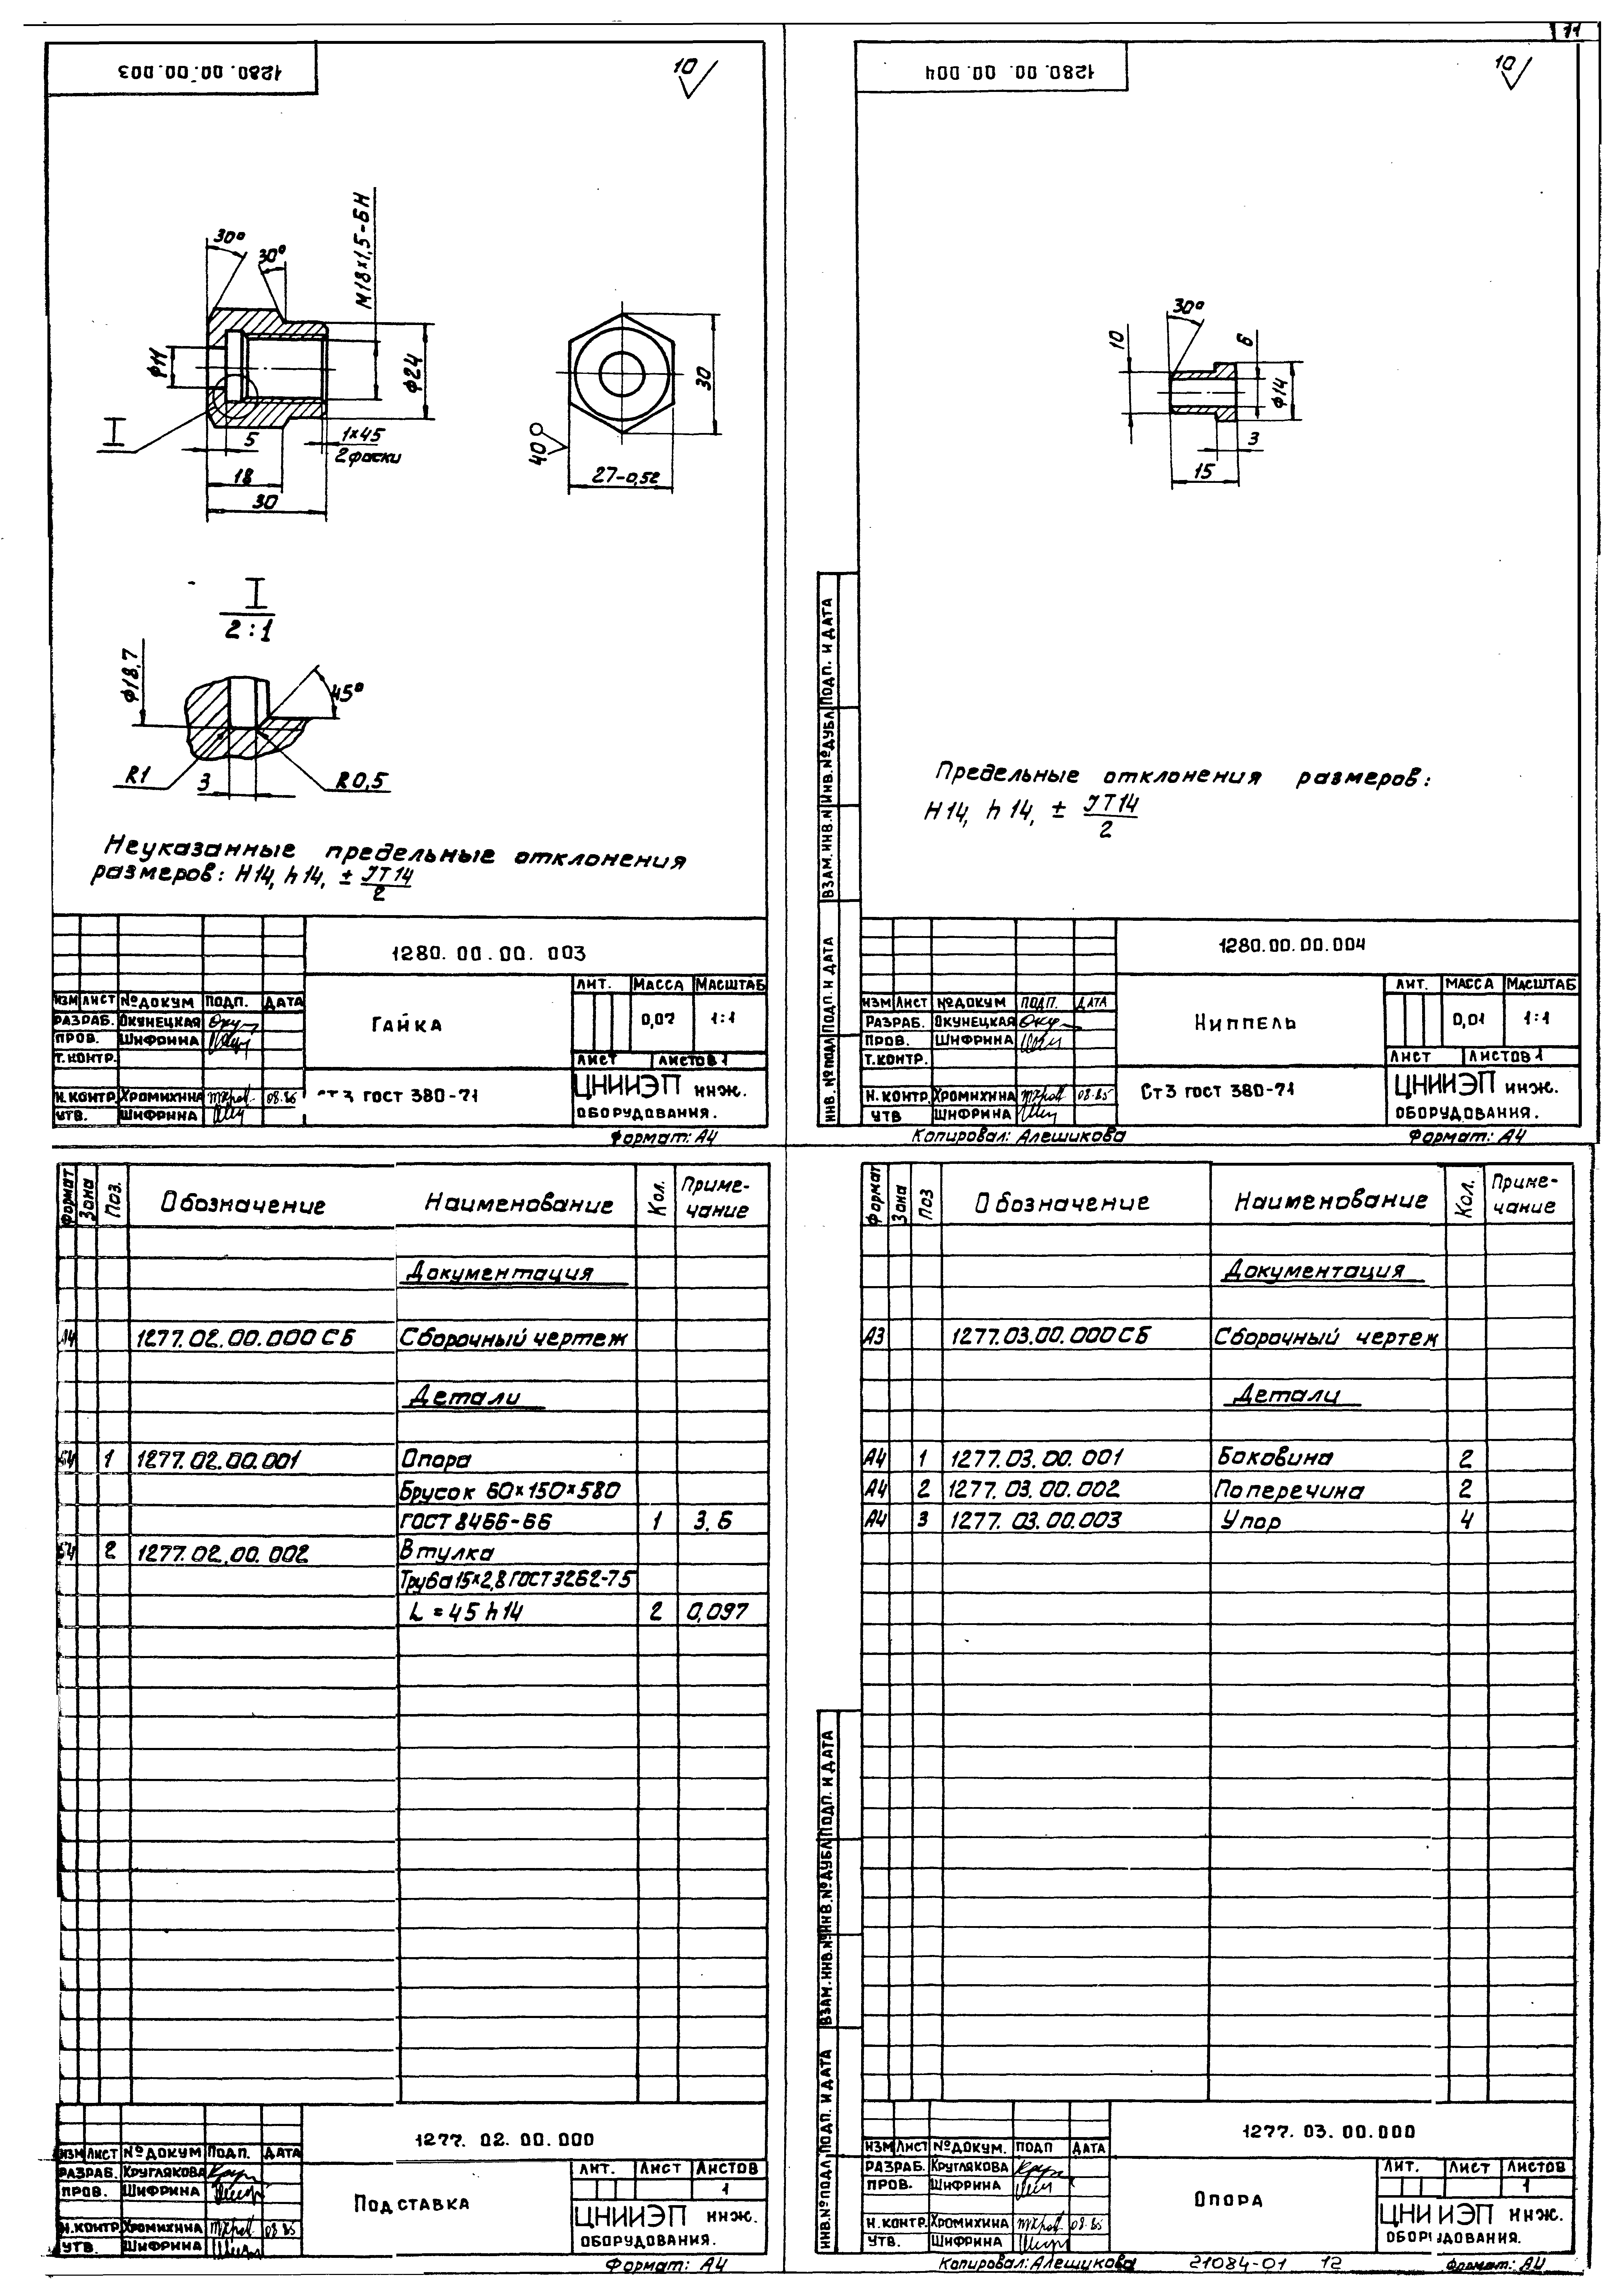 11
1280.00.00.003
10
30°
30°
М18×1,5-6Н
ф11
ф24
I
5
1×45
2 фаски
18
30
30
40
27-0,52
I
2:1
ф18,7
45°
R1
3
R0,5
Неуказанные предельные отклонения
размеров: Н14, h14, ± JT14/2
1280.00.00.003
ИЗМ ЛИСТ №ДОКУМ ПОДП. ДАТА
РАЗРАБ. ОКУНЕЦКАЯ
ПРОВ. ШИФРИНА
Т.КОНТР.
Н.КОНТР. ХРОМИХИНА 08.85
УТВ. ШИФРИНА
ГАЙКА
ЛИТ. МАССА МАСШТАБ
0,07 1:1
ЛИСТ ЛИСТОВ 1
Ст3 ГОСТ 380-71
ЦНИИЭП ИНЖ.
ОБОРУДОВАНИЯ.
Формат: А4
1280.00.00.004
10
30°
10
6
ф14
3
15
Предельные отклонения размеров:
Н14, h14, ± JT14/2
ИНВ.№ПОДЛ ПОДП. И ДАТА ВЗАМ.ИНВ.№ ИНВ.№ДУБЛ ПОДП. И ДАТА
1280.00.00.004
ИЗМ ЛИСТ №ДОКУМ ПОДП. ДАТА
РАЗРАБ. ОКУНЕЦКАЯ
ПРОВ. ШИФРИНА
Т.КОНТР.
Н.КОНТР. ХРОМИХИНА 08.85
УТВ ШИФРИНА
НИППЕЛЬ
ЛИТ. МАССА МАСШТАБ
0,01 1:1
ЛИСТ ЛИСТОВ 1
Ст3 ГОСТ 380-71
ЦНИИЭП ИНЖ.
ОБОРУДОВАНИЯ.
Копировал: Алешикова Формат: А4
Формат Зона Поз. Обозначение Наименование Кол. Примечание
Документация
А4 1277.02.00.000 СБ Сборочный чертеж
Детали
Б4 1 1277.02.00.001 Опора
Брусок 60×150×580
ГОСТ 8466-66 1 3,6
Б4 2 1277.02.00.002 Втулка
Труба 15×2,8 ГОСТ 3262-75
L = 45 h14 2 0,097
1277.02.00.000
ИЗМ ЛИСТ №ДОКУМ ПОДП. ДАТА
РАЗРАБ. КРУГЛЯКОВА
ПРОВ. ШИФРИНА
Н.КОНТР. ХРОМИХИНА 08.85
УТВ. ШИФРИНА
ПОДСТАВКА
ЛИТ. ЛИСТ ЛИСТОВ
1
ЦНИИЭП ИНЖ.
ОБОРУДОВАНИЯ.
Формат: А4
Формат Зона Поз Обозначение Наименование Кол. Примечание
Документация
А3 1277.03.00.000 СБ Сборочный чертеж
Детали
А4 1 1277.03.00.001 Боковина 2
А4 2 1277.03.00.002 Поперечина 2
А4 3 1277.03.00.003 Упор 4
ИНВ.№ПОДЛ ПОДП. И ДАТА ВЗАМ.ИНВ.№ ИНВ.№ДУБЛ ПОДП. И ДАТА
1277.03.00.000
ИЗМ ЛИСТ №ДОКУМ. ПОДП ДАТА
РАЗРАБ. КРУГЛЯКОВА
ПРОВ. ШИФРИНА
Н.КОНТР. ХРОМИХИНА 08.85
УТВ. ШИФРИНА
ОПОРА
ЛИТ. ЛИСТ ЛИСТОВ
1
ЦНИИЭП ИНЖ.
ОБОРУДОВАНИЯ.
Копировал: Алешикова 21084-01 12 Формат: А4